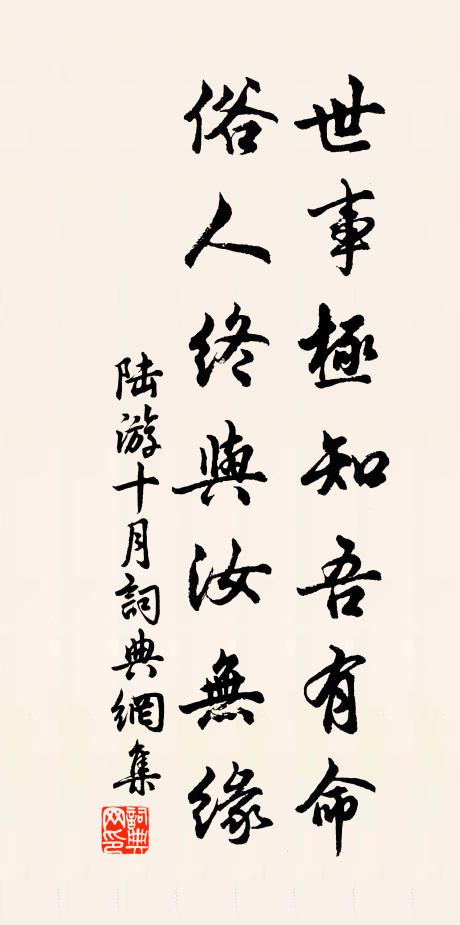 世事極知吾有命
俗人終與汝無緣
陆游十月詞典網集
詞典網印